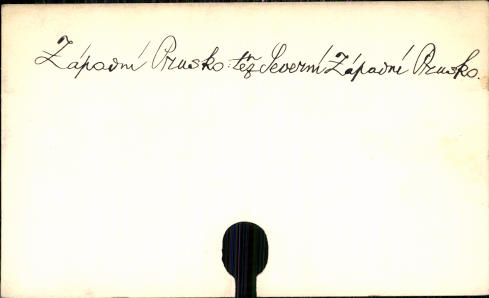 Západní Prusko: též Severní Západní Prusko.